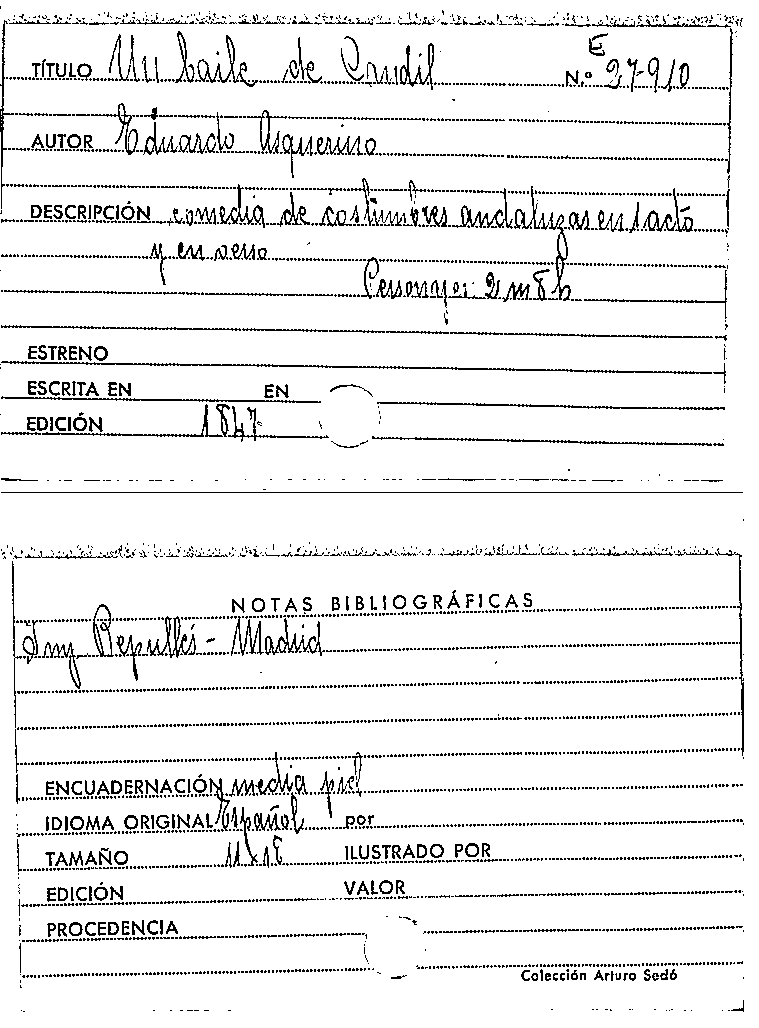 E
TÍTULO Un baile de Candil N.º 27-910
AUTOR Eduardo Asquerino
DESCRIPCIÓN comedia de costumbres andaluzas en 1 acto
y en verso
Personajes 2 m 8 h
ESTRENO
ESCRITA EN EN
EDICIÓN 1847
NOTAS BIBLIOGRÁFICAS
Imp Repullés - Madrid
ENCUADERNACIÓN media piel
IDIOMA ORIGINAL Español por
TAMAÑO 11x18 ILUSTRADO POR
EDICIÓN VALOR
PROCEDENCIA
Colección Arturo Sedó